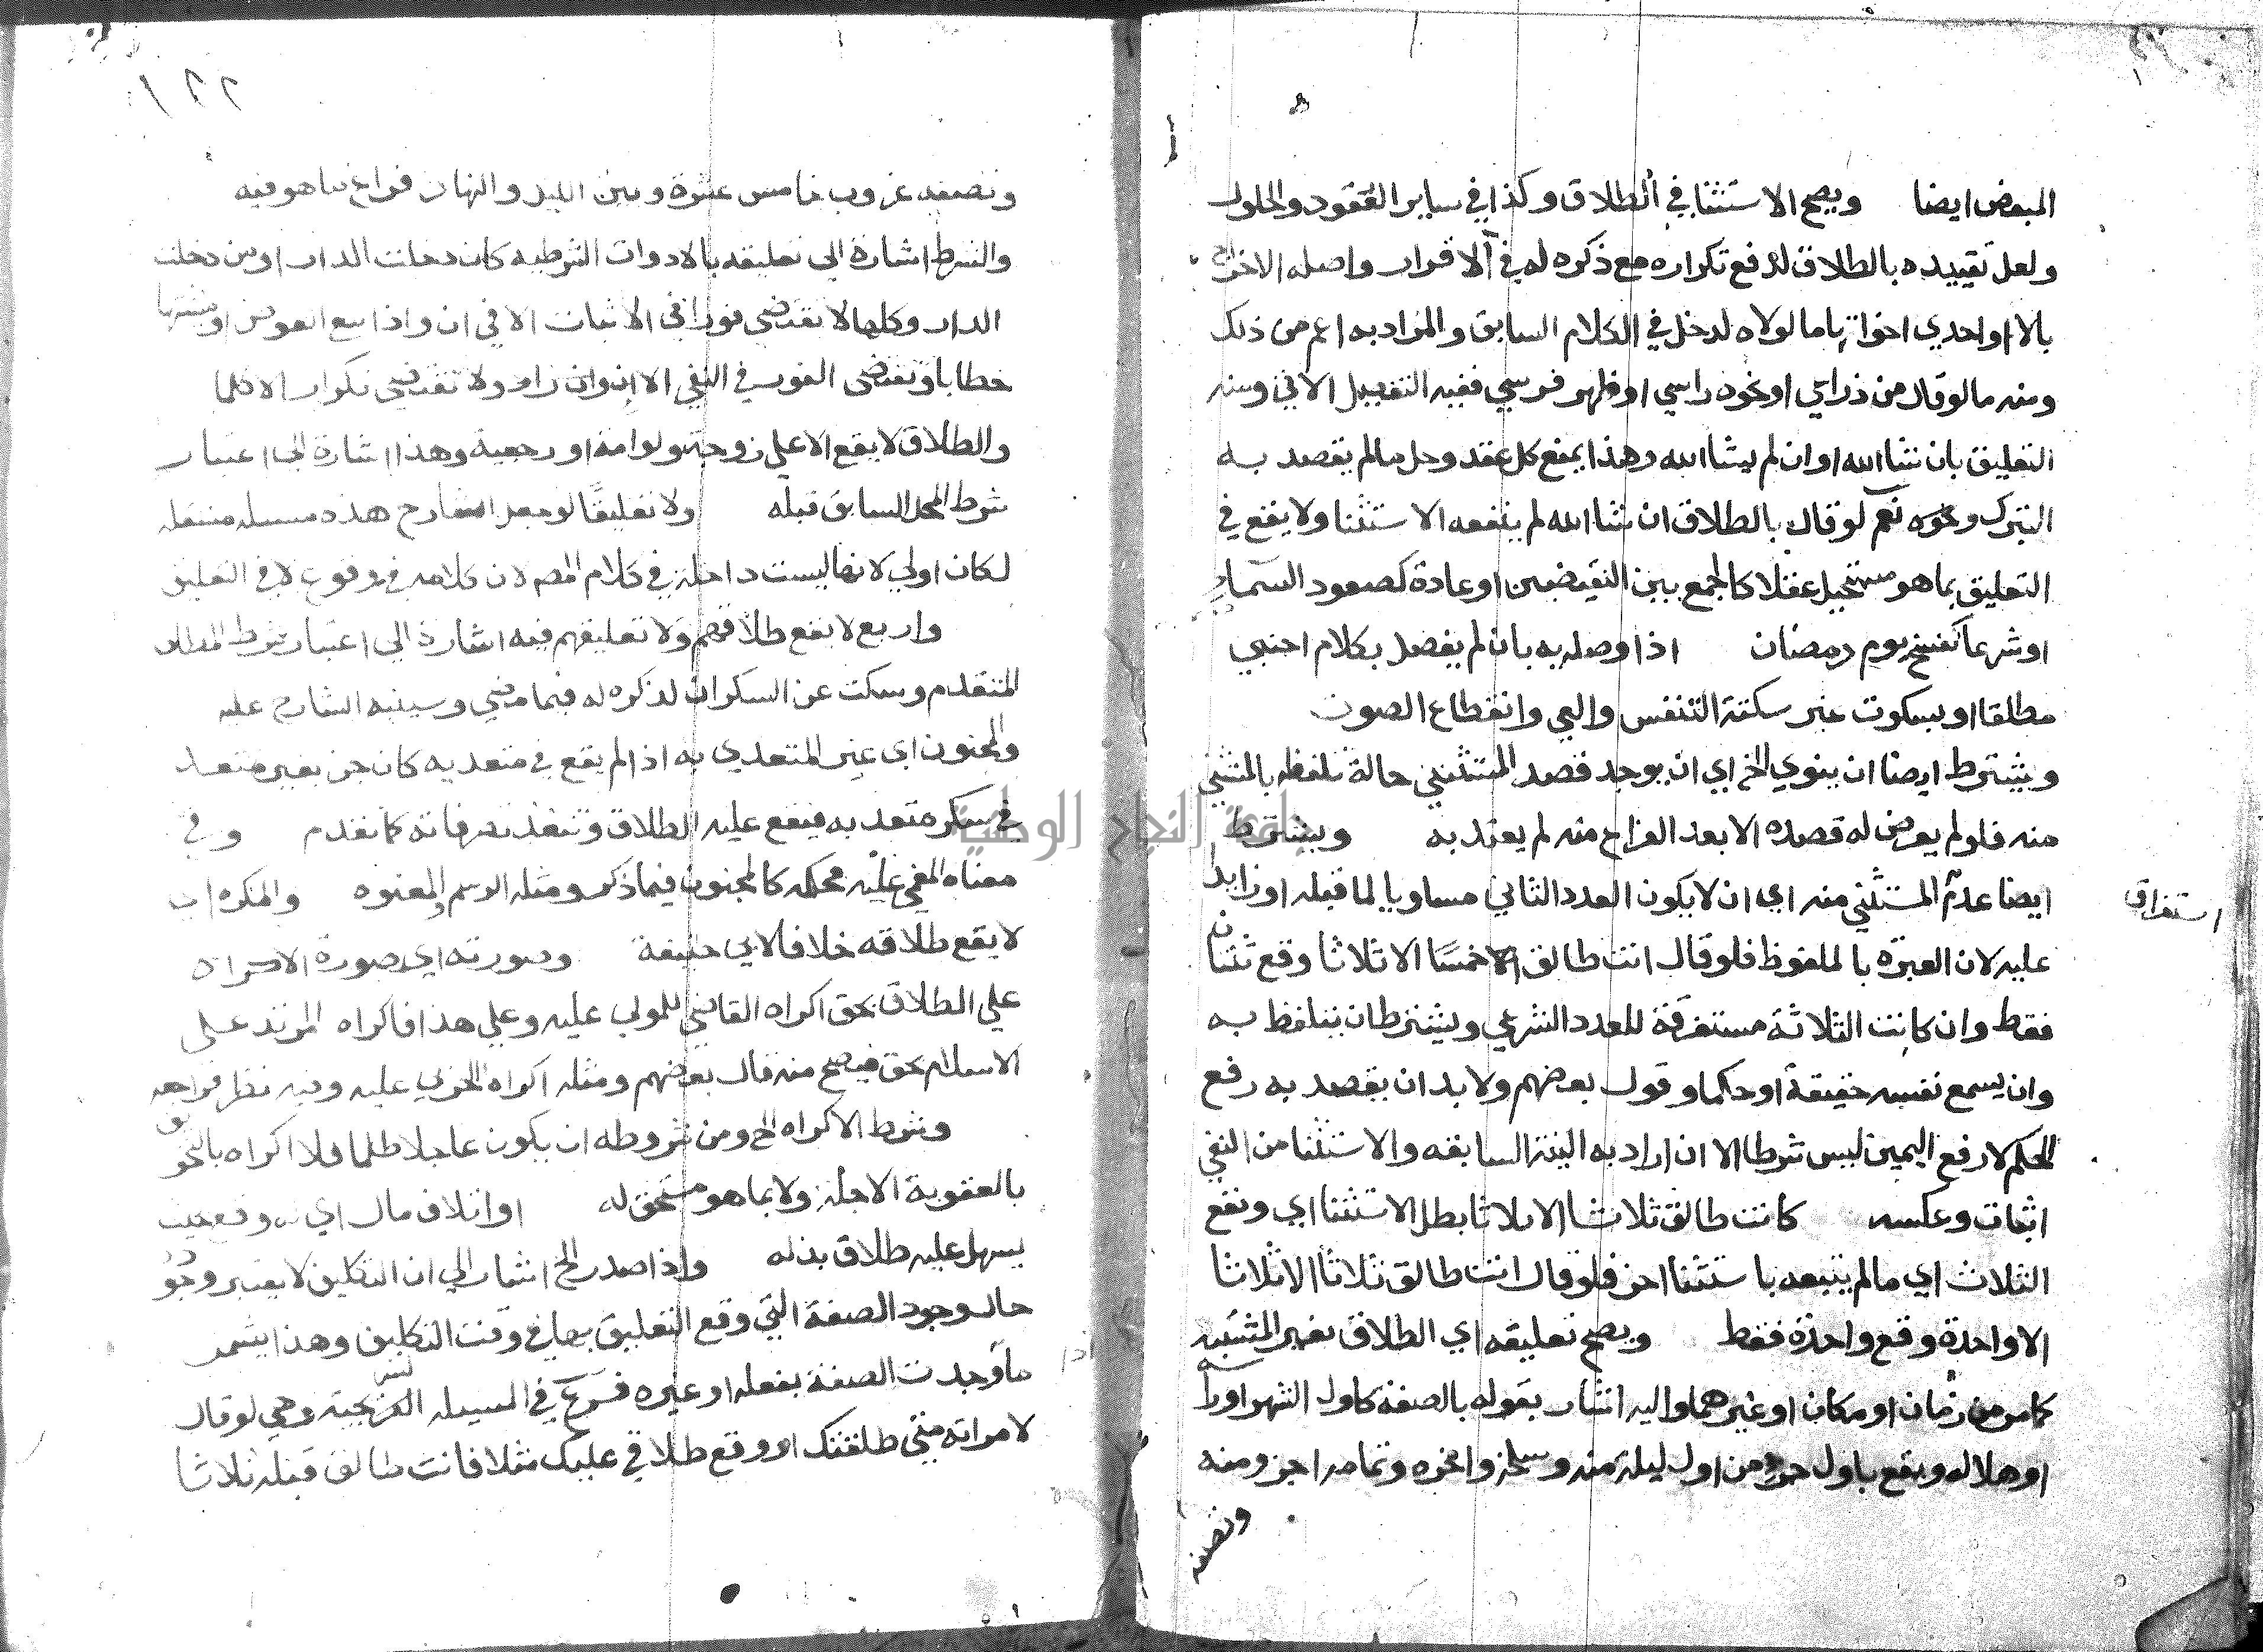 المبعض ايضا ويصح الاستثنا في الطلاق وكذا في ساير العقود والحلول
ولعل تقييده بالطلاق لدفع تكراره مع ذكره له في الاقرار واصله الاخراج
بالا او احدي اخواتها ما لولاه لدخل في الكلام السابق والمراد به اعم من ذلك
ومنه ما لوقال من ذراعي او نحوه راسي او ظهر فرسي ففيه التفصيل الاتي ومنه
التعليق بان شا الله او ان لم يشا الله وهذا يمنع كل عقد وحل ما لم يقصد به
التبرك ونحوه نعم لو قال بالطلاق ان شا الله لم ينفعه الاستثنا ولا يقع في
التعليق بما هو مستحيل عقلا كالجمع بين النقيضين او عادة كصعود السما
او شرعا كنسخ يوم رمضان اذا وصله به بان لم يفصل بكلام اجنبي
مطلقا او بسكوت غير سكتة التنفس والعي وانقطاع الصوت
ويشترط ايضا ان ينوي الخ اي ان يوجد قصد المستثني حالة تلفظه بالمستثني
منه فلو لم يعرض له قصده الا بعد الفراغ منه لم يعتد به ويشترط
ايضا عدم المستثني منه اي ان لا يكون العدد الثاني مساويا لما قبله او زايدا
استغراق
عليه لان العبرة بالملفوظ فلو قال انت طالق خمسا الا ثلاثا وقع ثنتان
فقط وان كانت الثلاثة مستغرقة للعدد الشرعي ويشترط ان يتلفظ به
وان يسمع نفسه حقيقة او حكما وقول بعضهم ولا بد ان يقصد به رفع
الحكم لا رفع اليمين ليس شرطا الا ان اراد به النية السابقه والاستثنا من النفي
اثبات وعكسه كانت طالق ثلاثا الا ثلاثا بطل الاستثنا اي وتقع
الثلاث اي ما لم يتبعه باستثنا اخر فلو قال انت طالق ثلاثا الا ثلاثا
الا واحدة وقع واحدة فقط ويصح تعليقه اي الطلاق بغير المشيه
كما مر من زمان او مكان او غيرهما واليه اشار بقوله بالصفة كاول الشهر او راسه
او هلاله ويقع باول جزء من اول ليلة منه وسلخه واخره وتمامه اخر ومنه
ونصفه
١٢٢
ونصفه غروب خامس عشرة وبين الليل والنهار فراغ ما هو فيه
والشرط اشارة الي تعليقه بالادوات الشرطيه كان دخلت الدار او من دخلت
الدار وكلها لا تقتضي فورا في الاثبات الا في ان واذا مع العوض او مشيتها
خطابا وتقتضي الفور في النفي الا ان وان زاد ولا تقتضي تكرار الا كلما
والطلاق لا يقع الا علي زوجة ولو امة او رجعية وهذا اشارة الي اعتبار
شرط المحل السابق قبله ولا تعليقا لو جعل الشارح هذه مسيله مستقله
لكان اولي لانها ليست داخلة في كلام المص لان كلامه في وقوع لا في التعليق
واربع لا يقع طلاقهم ولا تعليقهم فيه اشارة الي اعتبار شرط المطلق
المتقدم وسكت عن السكران لذكره له فيما مضي وسينبه الشارح عليه
والمجنون اي غير المتعدي به اذا لم يقع في متعد به كان جن بغير متعد
في سكره متعد به فيقع عليه الطلاق وتنفذ تصرفاته كما تقدم وفي
معناه المغمي عليه فحكمه كالمجنون فيما ذكر ومثله البرسم والمعتوه والمكره اي
لا يقع طلاقه خلافا لابي حنيفة وصورته اي صورة الاكراه
علي الطلاق بحق اكراه القاضي للمولي عليه وعلي هذا فاكراه المرتد علي
الاسلام بحق فيصح منه قال بعضهم ومثله اكراه الحربي عليه وفيه نظر فراجعه
وشرط الاكراه الخ ومن شروطه ان يكون عاجلا ظلما فلا اكراه بالتخويف
بالعقوبة الاجلة ولا بما هو مستحق له او اتلاف مال اي له وقع بحيث
يسهل عليه طلاق بذله واذا صدر الخ اشار الي ان التكليف لا يعتبر وجوده
حال وجود الصفة التي وقع التعليق بها في وقت التكليف وهذا يشمل
ما وجدت الصفة بفعله او غيره فرع في المسيله السريجية وهي لو قال
لامراته متي طلقتك او وقع طلاقي عليك مثلا فانت طالق قبله ثلاثا